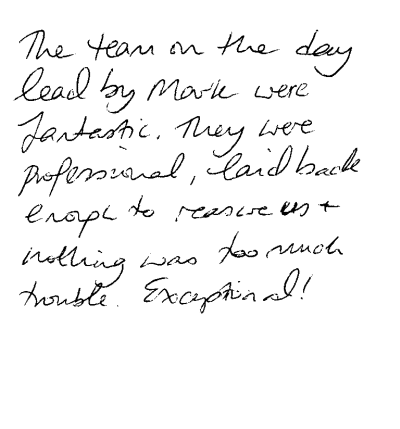 The team on the day
lead by Mark were
fantastic. They were
professional, laid back
enough to reassure us +
nothing was too much
trouble. Exceptional!